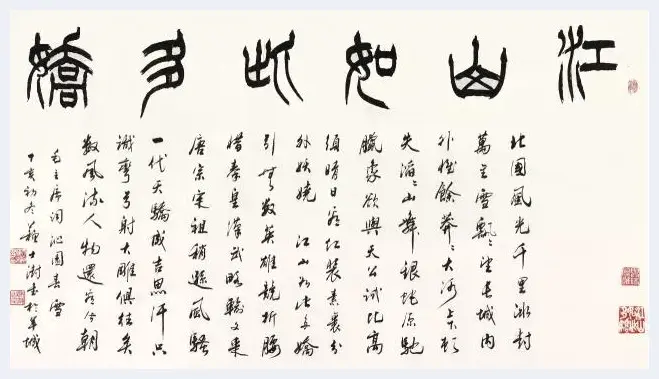 江山如此多嬌
北國風光千里冰封
萬里雪飄〻望長城內
外惟餘莽〻大河上下頓
失滔〻山舞銀蛇原馳
蠟象欲與天公試比高
須晴日看紅裝素裹分
外妖嬈 江山如此多嬌
引無數英雄競折腰
惜秦皇漢武略輸文采
唐宗宋祖稍遜風騷
一代天驕成吉思汗只
識彎弓射大雕俱往矣
數風流人物還看今朝
毛主席詞沁園春雪
丁亥初冬士澍書於羊城